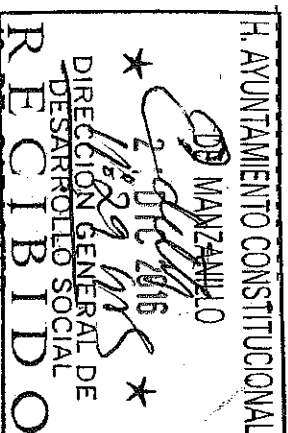 H. AYUNTAMIENTO CONSTITUCIONAL
DE MANZANILLO
DIC 2016
DIRECCIÓN GENERAL DE
DESARROLLO SOCIAL
RECIBIDO